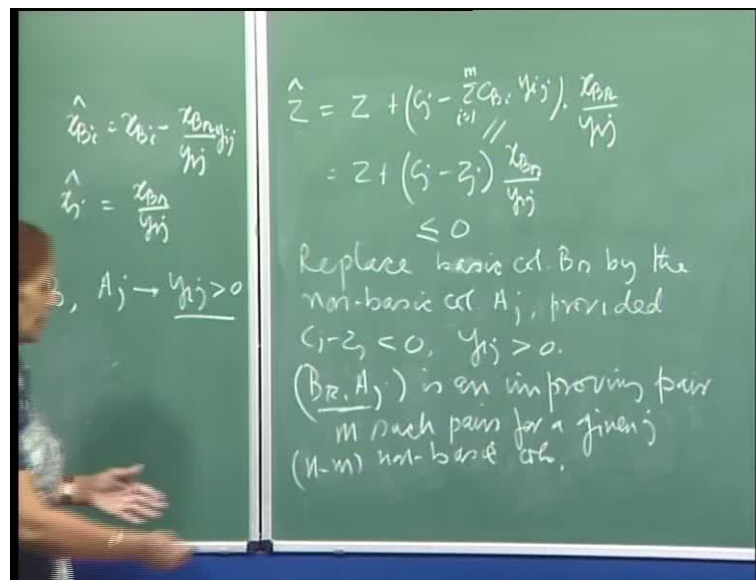 x̂_Bi = x_Bi - x_Br/y_rj y_ij
x̂_j = x_Br/y_rj
, A_j → y_rj > 0
ẑ = z + (c_j - Σ_{i=1}^{m} c_Bi y_ij) . x_Br/y_rj
= z + (c_j - z_j) x_Br/y_rj
≤ 0
Replace basic col. Br by the
non-basic col. A_j, provided
c_j - z_j < 0, y_rj > 0.
(B_r, A_j) is an improving pair
m such pairs for a given j
(n-m) non-basic cols.